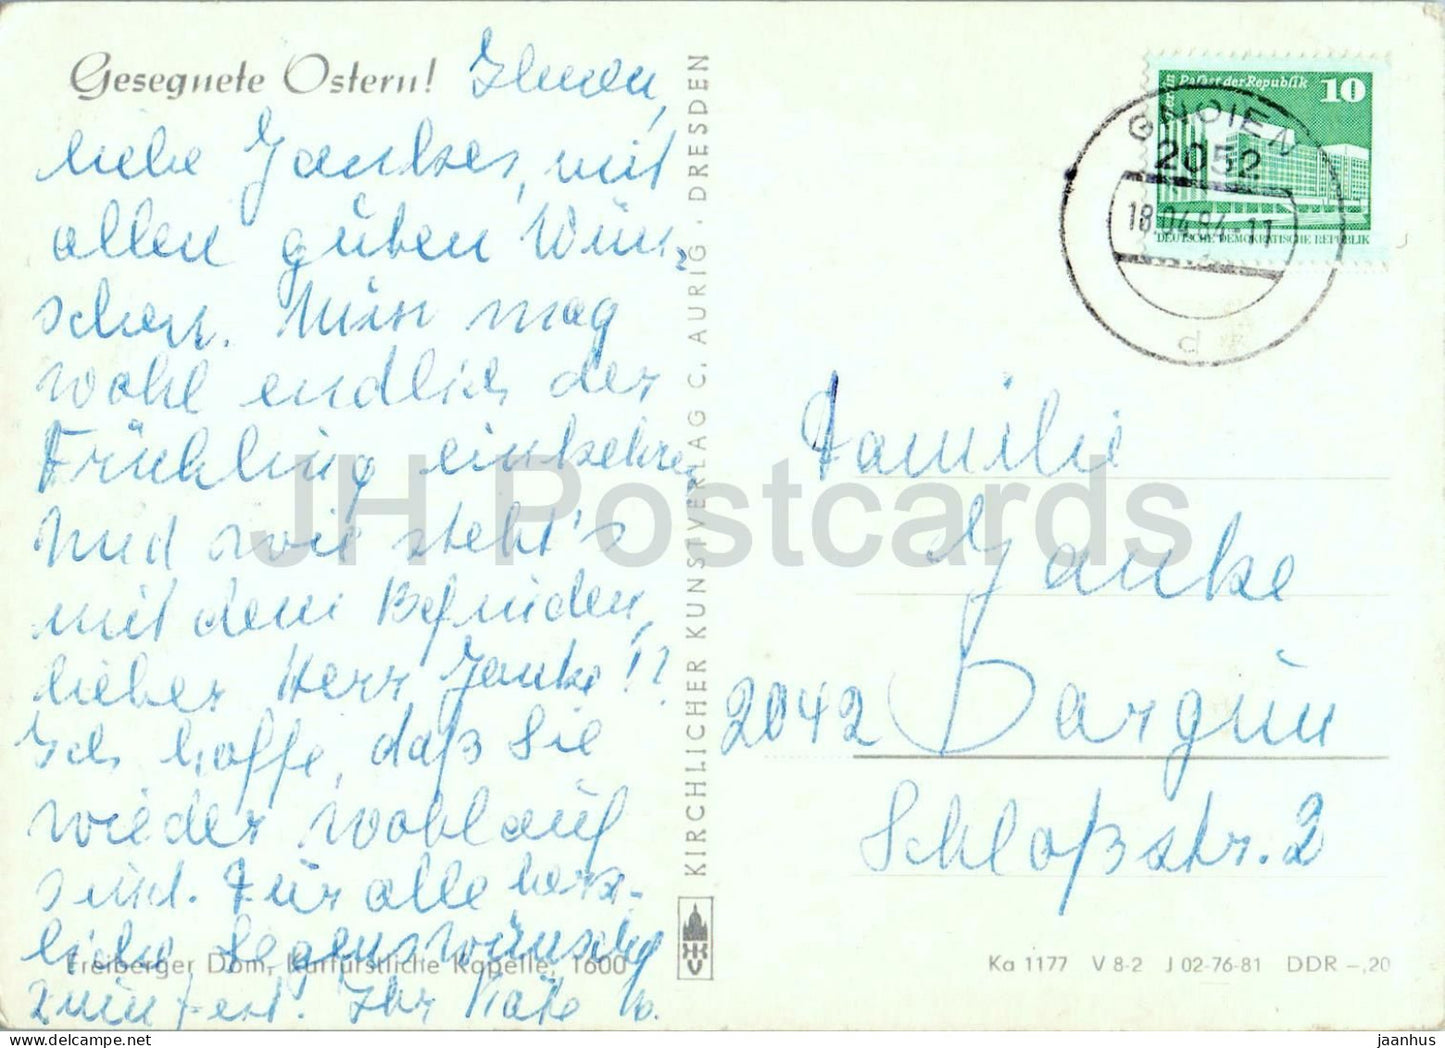 Gesegnete Ostern! Ihnen,
liebe Jankes, mit
allen guten Wün-
schen. Nun mag
wohl endlich der
Frühling einkehren
Und wie steht's
mit dem Befinden,
lieber Herr Janke!?
Ich hoffe, daß Sie
wieder wohlauf
sind. Für alle herz-
liche Segenswünsche
zum Fest. Ihr
Freiberger Dom, Kurfürstliche Kapelle, 1600
KIRCHLICHER KUNSTVERLAG C. AURIG · DRESDEN
Palast der Republik 10
DEUTSCHE DEMOKRATISCHE REPUBLIK
GNOIEN
2052
18.04.84-11
d
Familie
Janke
2042 Dargun
Schloßstr. 2
Ka 1177 V 8-2 J 02-76-81 DDR -,20
JH Postcards
jaanhus @ delcampe.net